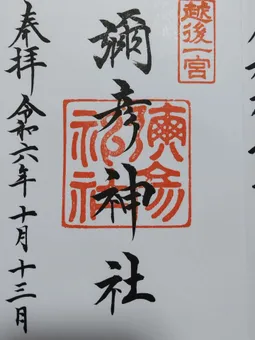 越後一宮
彌彦神社
奉拝 令和六年 十月十三日